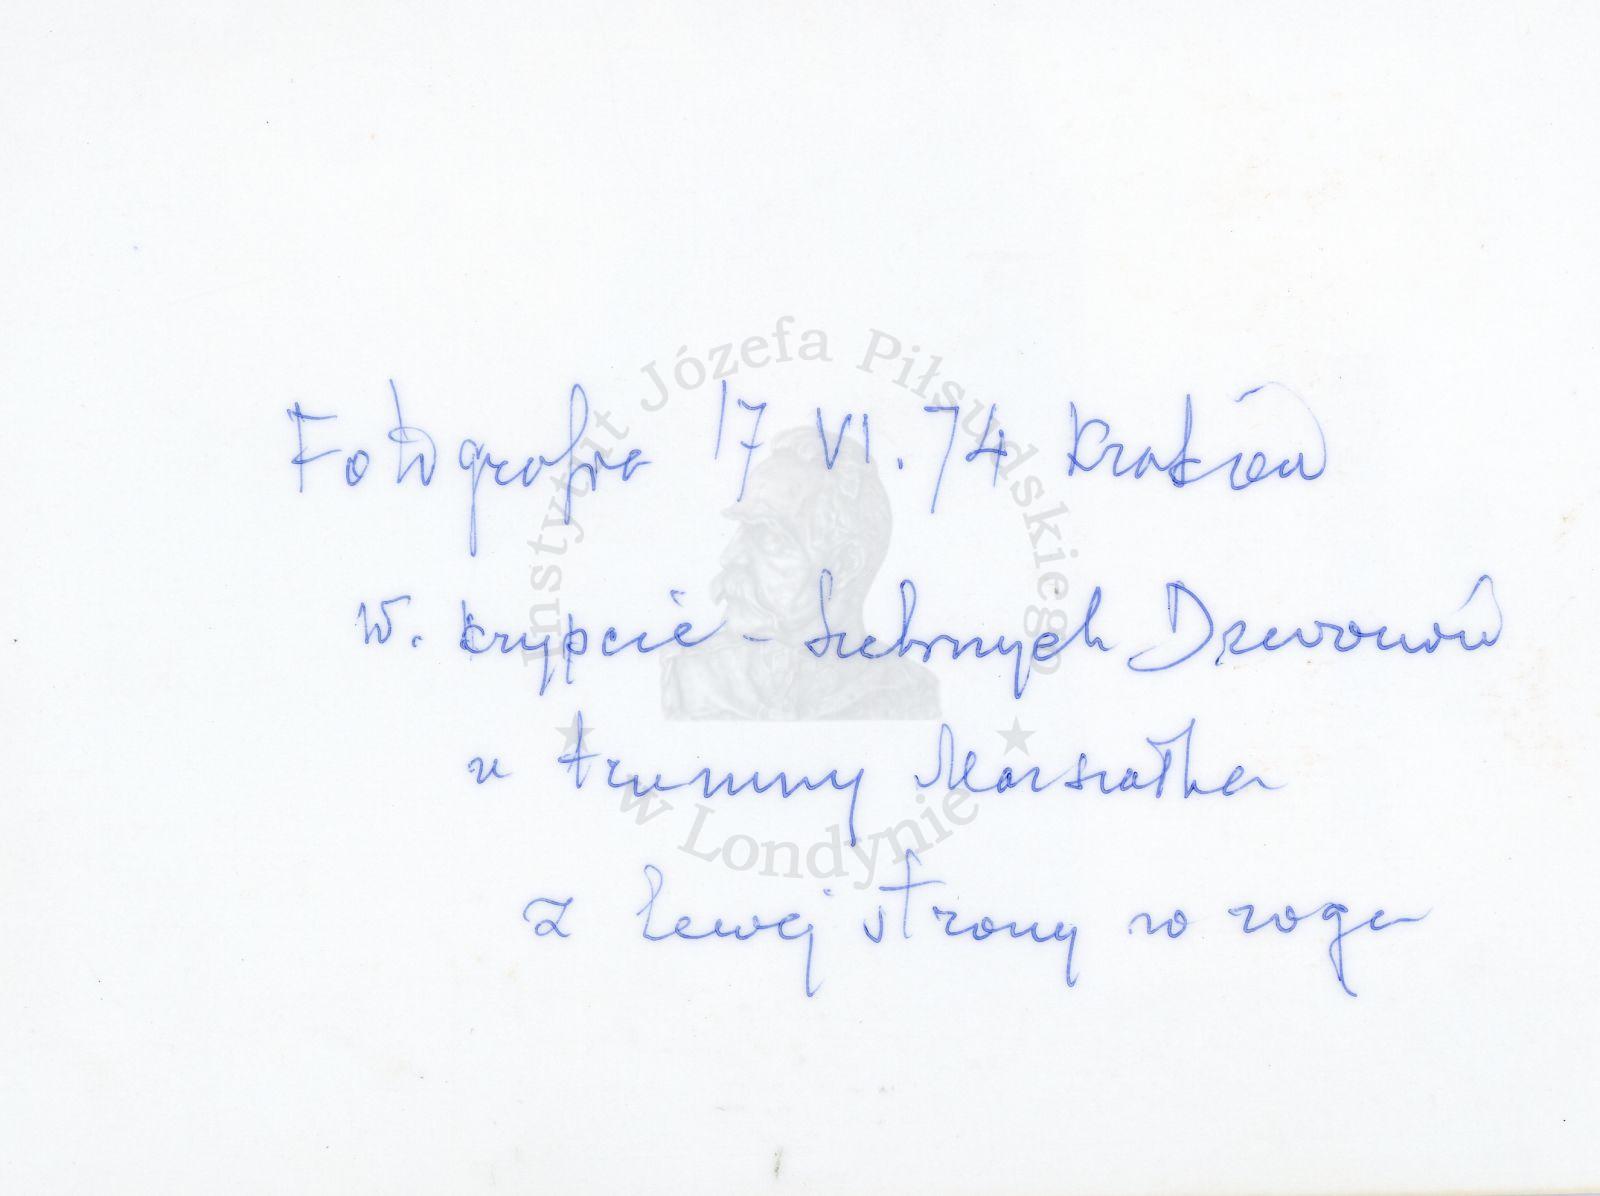 Fotografia 17 VI. 74 Kraków
w. krypcie – Srebrnych Dzwonów
u trumny Marszałka
z lewej strony w rogu
Instytut Józefa Piłsudskiego
w Londynie